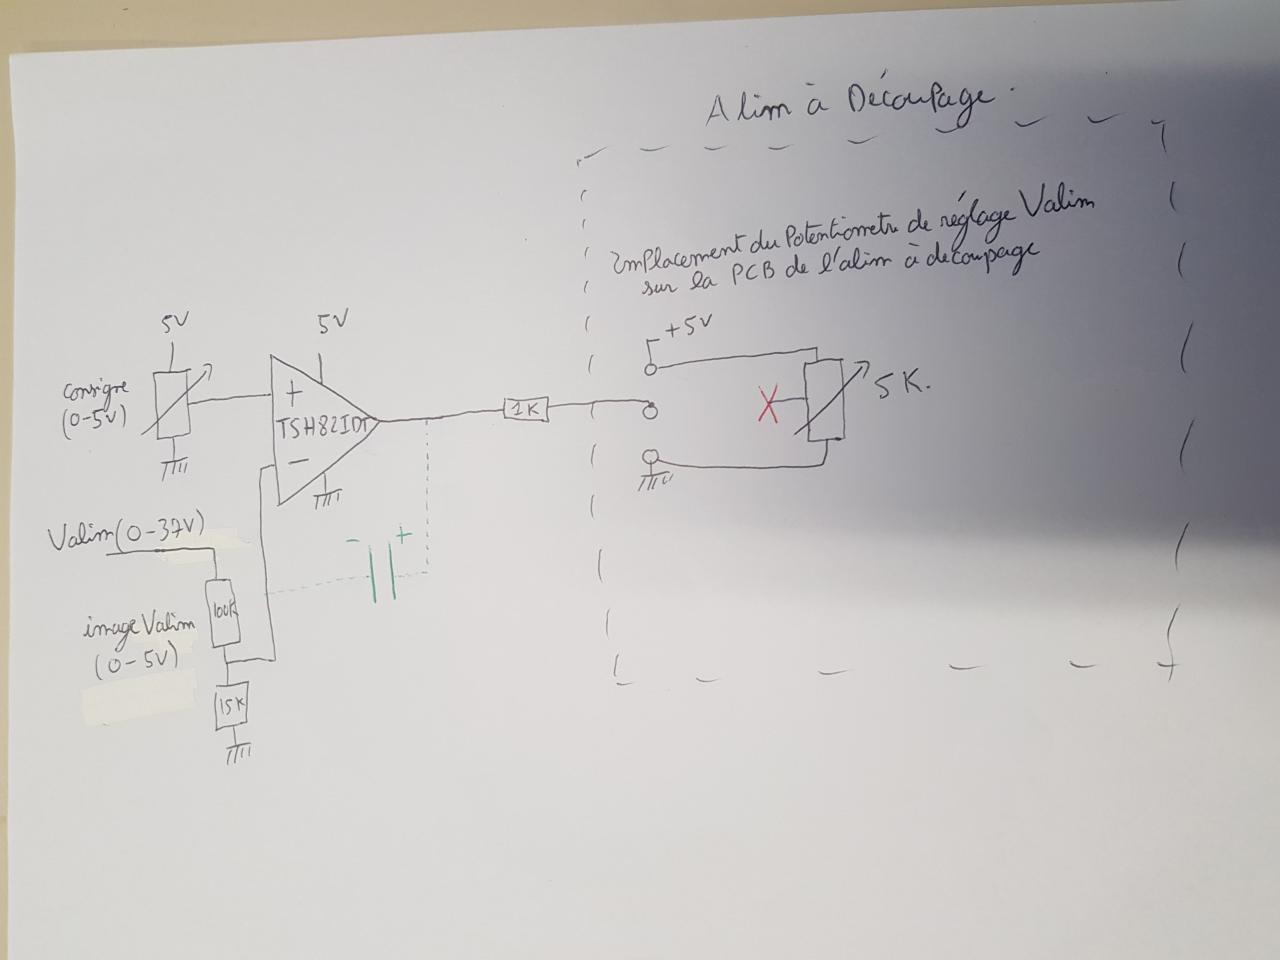 Alim à Découpage.
Emplacement du Potentiometre de réglage Valim
sur la PCB de l'alim à découpage
5V
5V
+5V
consigne
(0-5V)
+
TSH82IDT
-
1K
5K.
X
Valim(0-37V)
- +
100K
image Valim
(0-5V)
15K